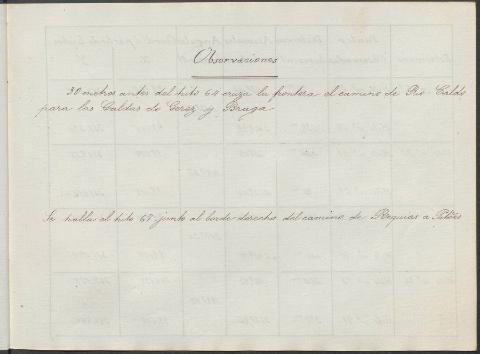 Observaciones
30 metros antes del hito 64 cruza la frontera el camino de Rio Caldo
para las Caldas de Gerez y Braga.
Se halla el hito 67 junto al borde derecho del camino de Requias a Pitões